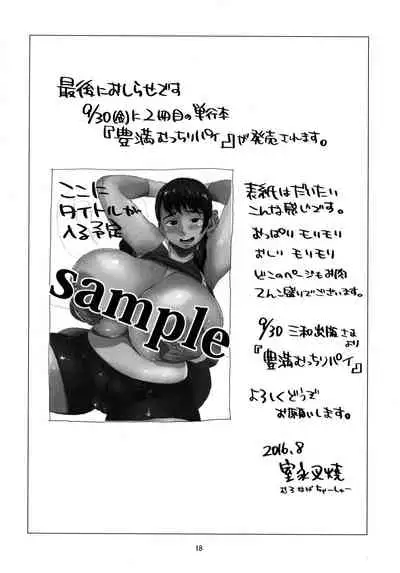 最後におしらせです
9/30(金)に2冊目の単行本
『豊満むっちりパイ』が発売されます。
ここに
タイトルが
入る予定
sample
表紙はだいたい
こんな感じです。
おっぱいモリモリ
おしりモリモリ
どこのページもお肉
てんこ盛りでございます。
9/30 三和出版さまより
『豊満むっちりパイ』
よろしくどうぞ
お願いします。
2016.8
室永叉焼
むろながちゃーしゅー
18